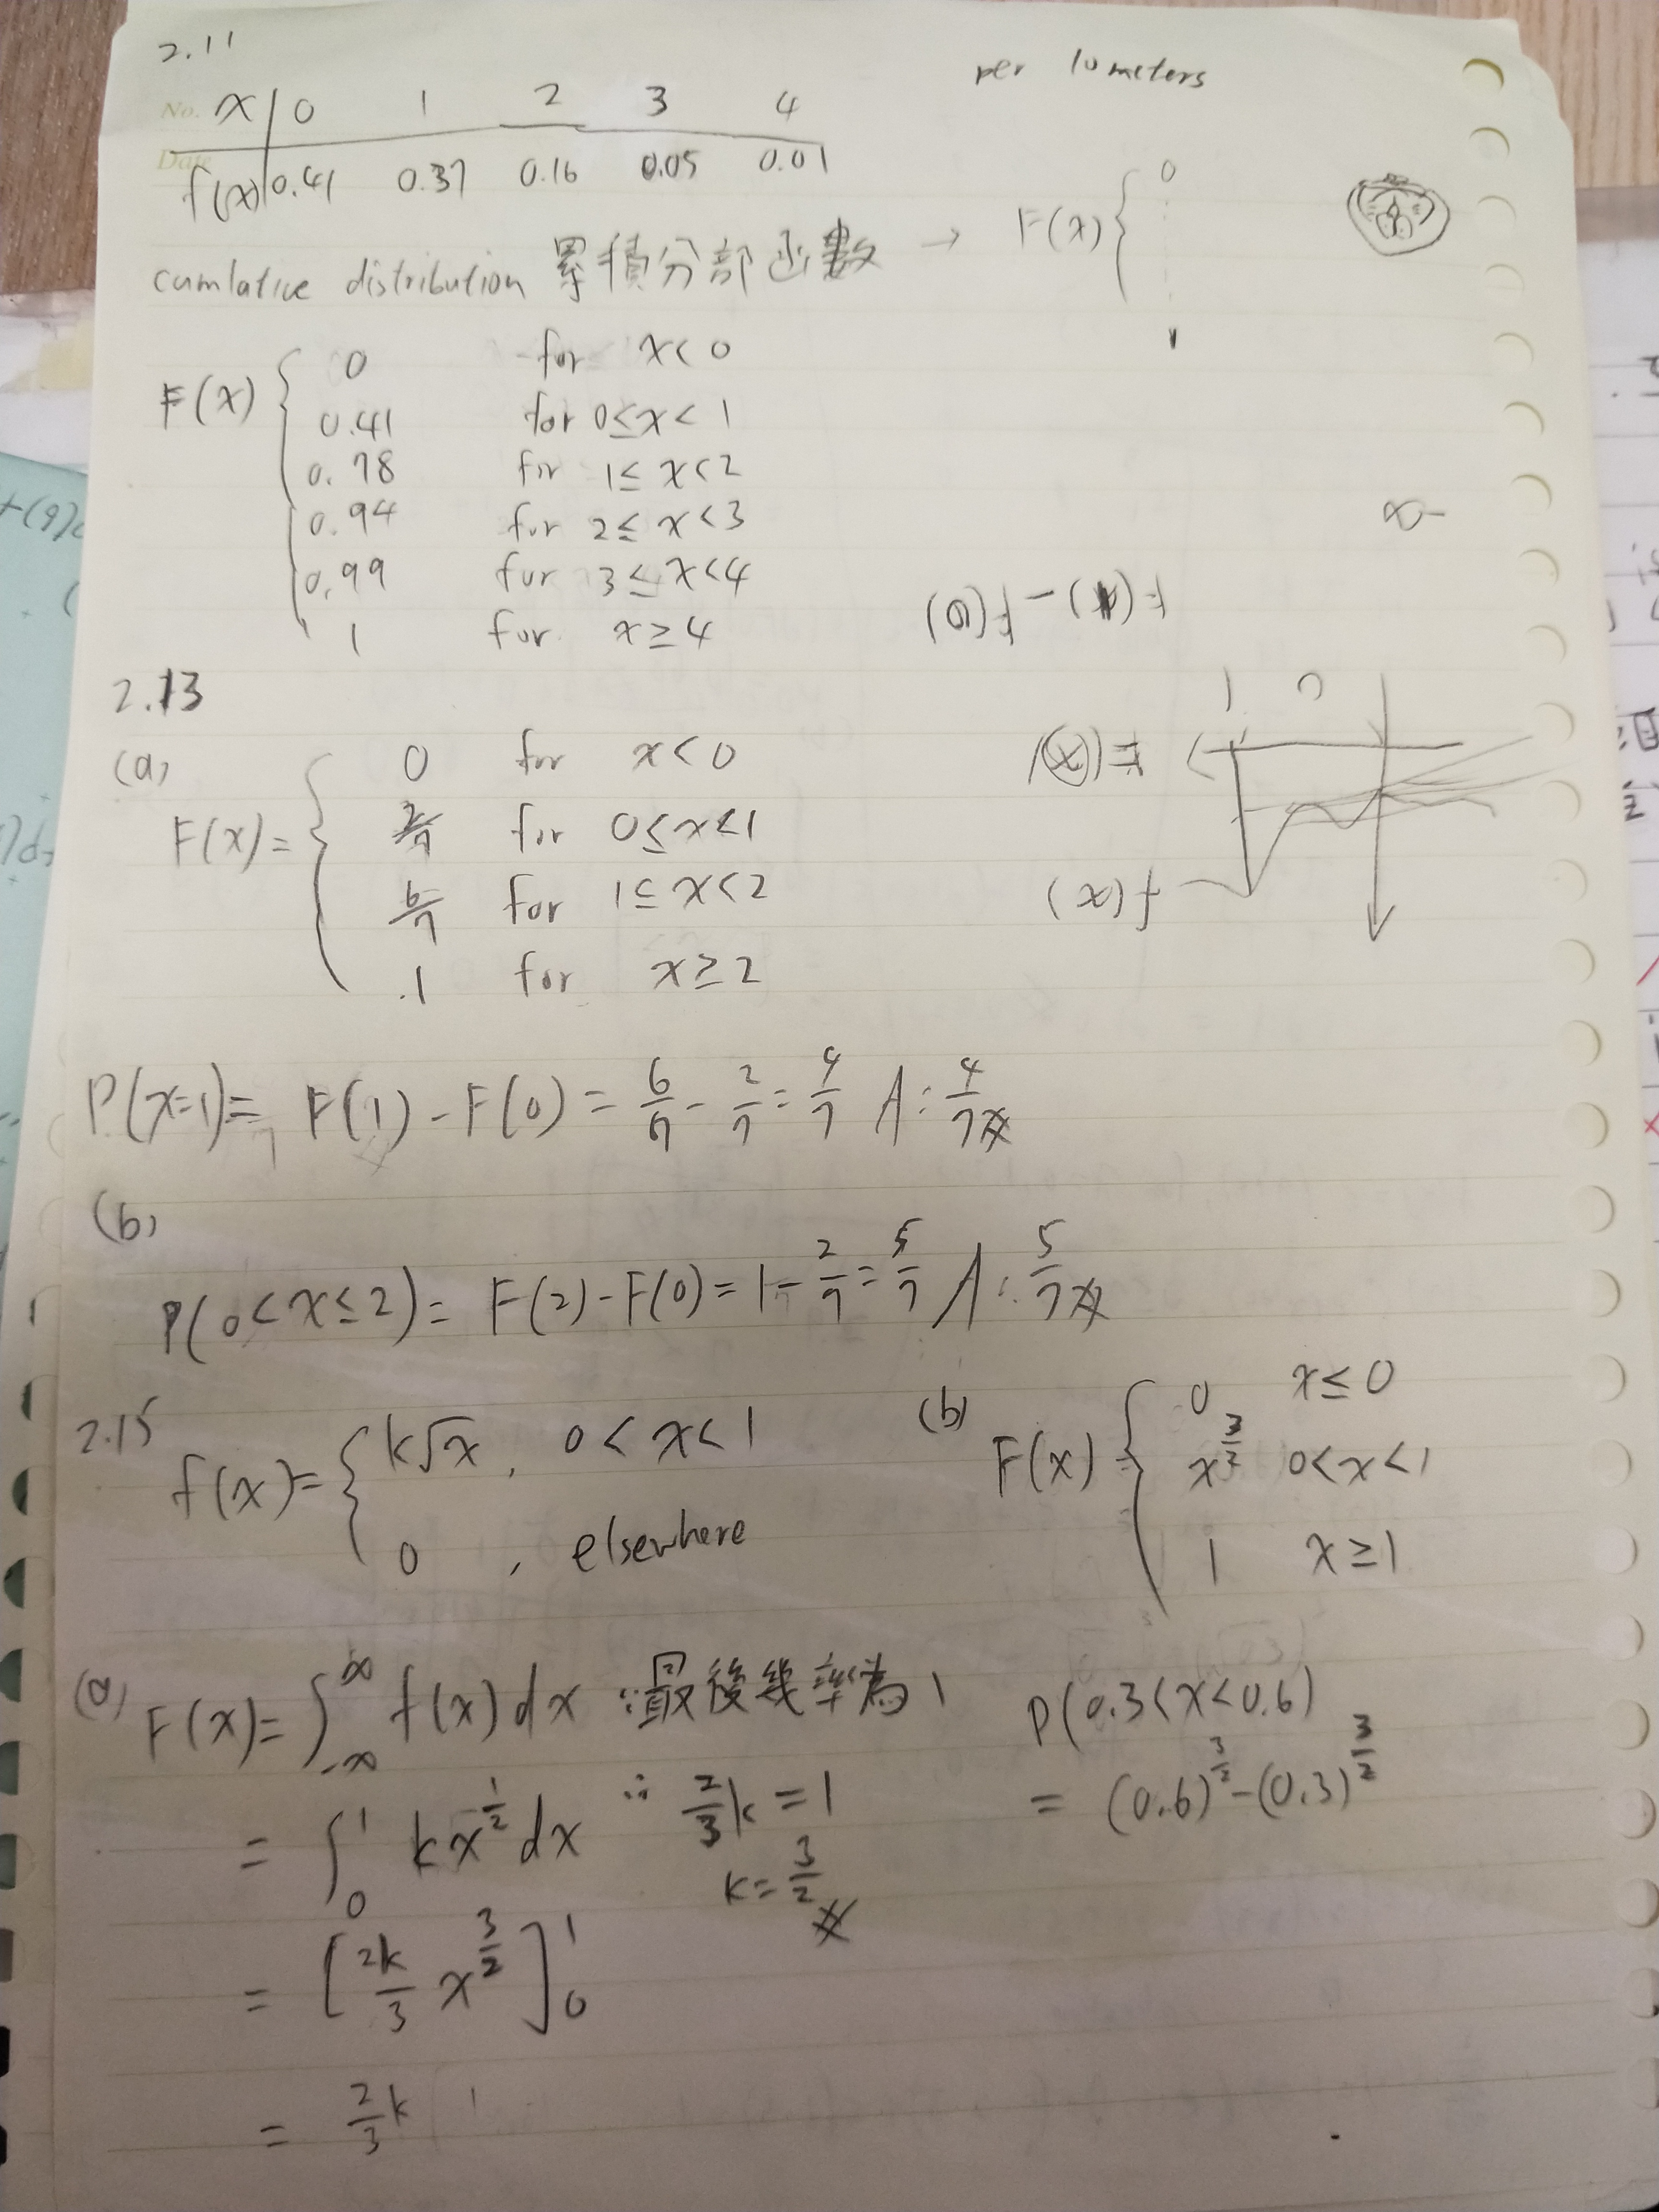 2.11
per 10 meters
No. x | 0 1 2 3 4
Date f(x) | 0.41 0.37 0.16 0.05 0.01
cumlative distribution 累積分部函數 → F(x) { 0
1
F(x) { 0 for x<0
0.41 for 0≤x<1
0.78 for 1≤x<2
0.94 for 2≤x<3
0.99 for 3≤x<4
1 for x≥4
-∞
F( )-F(0)
2.13
(a)
F(x)= { 0 for x<0
2/7 for 0≤x<1
6/7 for 1≤x<2
1 for x≥2
1 0
F(x)
f(x)
P(x=1)= F(1)-F(0)= 6/7 - 2/7 = 4/7 A: 4/7
(b)
P(0<x≤2)= F(2)-F(0)= 1- 2/7 = 5/7 A: 5/7
2.15
f(x)= { k√x, 0<x<1
0, elsewhere
(b)
F(x)= { 0 x≤0
x^3/2 0<x<1
1 x≥1
(a) F(x)= ∫_-∞^∞ f(x)dx ∵最後幾率為1
= ∫_0^1 kx^1/2 dx ∴ 2/3 k=1
k= 3/2
= [2k/3 x^3/2]_0^1
= 2/3 k
P(0.3<x<0.6)
= (0.6)^3/2-(0.3)^3/2